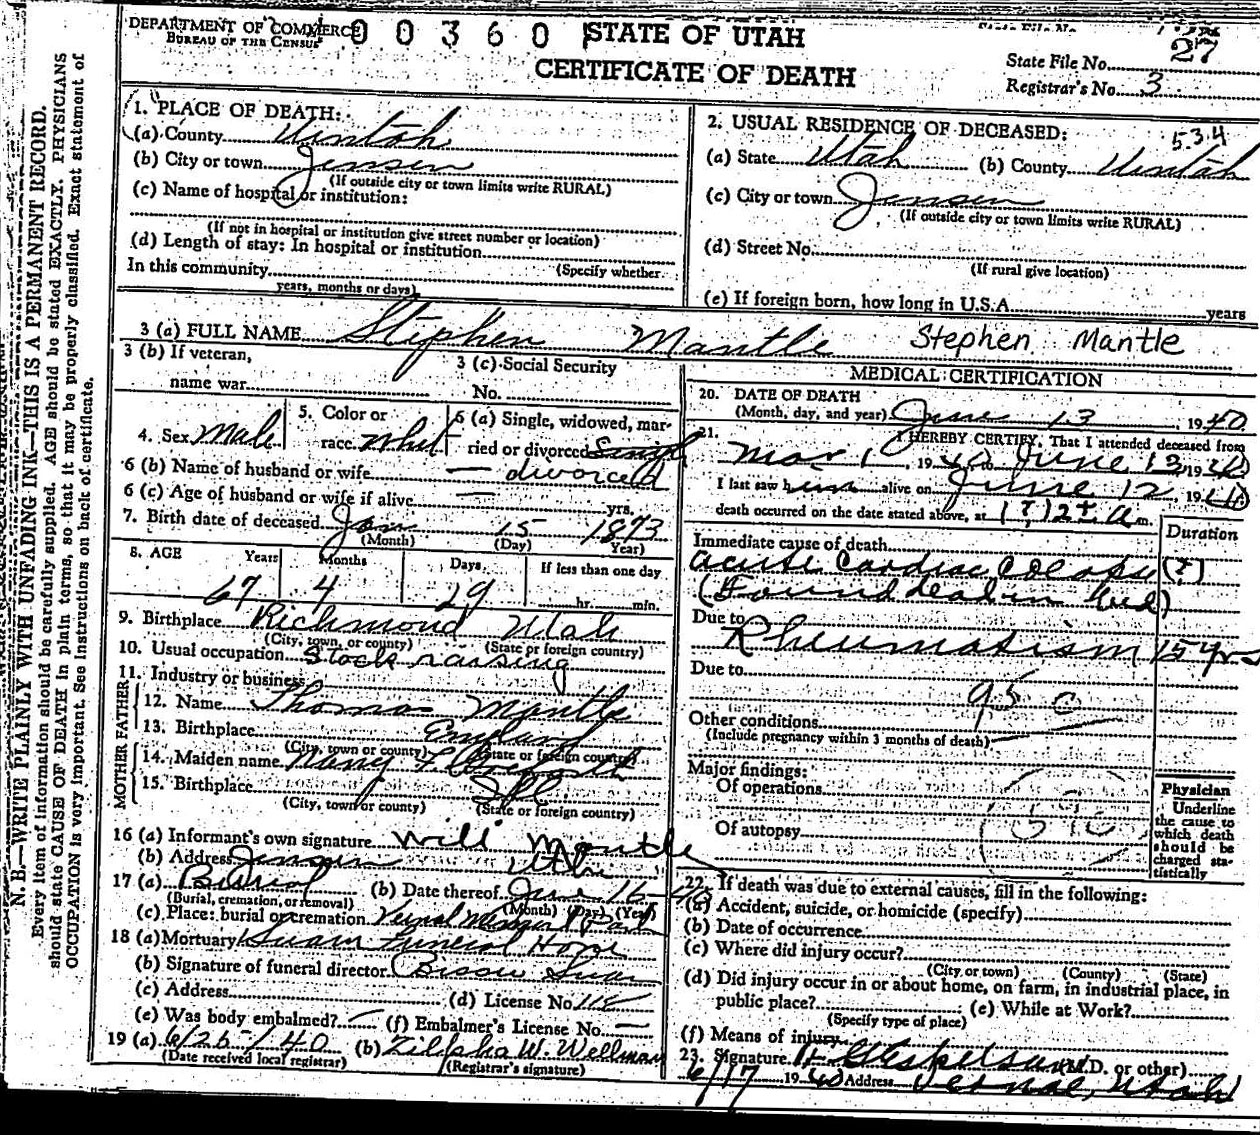 DEPARTMENT OF COMMERCE
BUREAU OF THE CENSUS
00360
STATE OF UTAH
CERTIFICATE OF DEATH
State File No. 27
Registrar's No. 3
N. B.—WRITE PLAINLY WITH UNFADING INK—THIS IS A PERMANENT RECORD.
Every item of information should be carefully supplied. AGE should be stated EXACTLY. PHYSICIANS
should state CAUSE OF DEATH in plain terms, so that it may be properly classified. Exact statement of
OCCUPATION is very important. See instructions on back of certificate.
1. PLACE OF DEATH:
(a) County Uintah
(b) City or town Jensen
(If outside city or town limits write RURAL)
(c) Name of hospital or institution:
(If not in hospital or institution give street number or location)
(d) Length of stay: In hospital or institution
(Specify whether
In this community
years, months or days)
2. USUAL RESIDENCE OF DECEASED: 534
(a) State Utah (b) County Uintah
(c) City or town Jensen
(If outside city or town limits write RURAL)
(d) Street No.
(If rural give location)
(e) If foreign born, how long in U.S.A. years
3 (a) FULL NAME Stephen Mantle Stephen Mantle
3 (b) If veteran,
name war
3 (c) Social Security
No.
4. Sex Male
5. Color or
race White
6 (a) Single, widowed, mar-
ried or divorced Single
divorced
6 (b) Name of husband or wife —
6 (c) Age of husband or wife if alive — yrs.
7. Birth date of deceased Jan 15 1873
(Month) (Day) (Year)
8. AGE Years Months Days If less than one day
67 4 29 hr. min.
9. Birthplace Richmond Utah
(City, town, or county) (State or foreign country)
10. Usual occupation Stock raising
11. Industry or business
FATHER
12. Name Thomas Mantle
13. Birthplace England
(City, town or county) (State or foreign country)
MOTHER
14. Maiden name
15. Birthplace
(City, town or county) (State or foreign country)
16 (a) Informant's own signature Will Mantle
(b) Address Jensen Utah
17 (a) Burial (b) Date thereof June 16-40
(Burial, cremation, or removal) (Month) (Day) (Year)
(c) Place: burial or cremation Vernal Memorial Park
18 (a) Mortuary Swain Funeral Home
(b) Signature of funeral director Swain
(c) Address (d) License No.
(e) Was body embalmed? — (f) Embalmer's License No. —
19 (a) 6/26/40 (b) Zilpha W. Wellman
(Date received local registrar) (Registrar's signature)
MEDICAL CERTIFICATION
20. DATE OF DEATH
(Month, day, and year) June 13, 1940
21. I HEREBY CERTIFY, That I attended deceased from
Mar 1, 1940 to June 13, 1940
I last saw him alive on June 12 1940
death occurred on the date stated above, at m.
Duration
Immediate cause of death
acute cardiac (?)
(Found dead in bed)
Due to
Rheumatism 15 yrs
Due to
95 c
Other conditions
(Include pregnancy within 3 months of death)
Major findings:
Of operations
Of autopsy
Physician
Underline
the cause to
which death
should be
charged sta-
tistically
22. If death was due to external causes, fill in the following:
(a) Accident, suicide, or homicide (specify)
(b) Date of occurrence
(c) Where did injury occur?
(City or town) (County) (State)
(d) Did injury occur in or about home, on farm, in industrial place, in
public place? (e) While at Work?
(Specify type of place)
(f) Means of injury
23. Signature (M.D. or other)
6/17 1940 Address Vernal, Utah